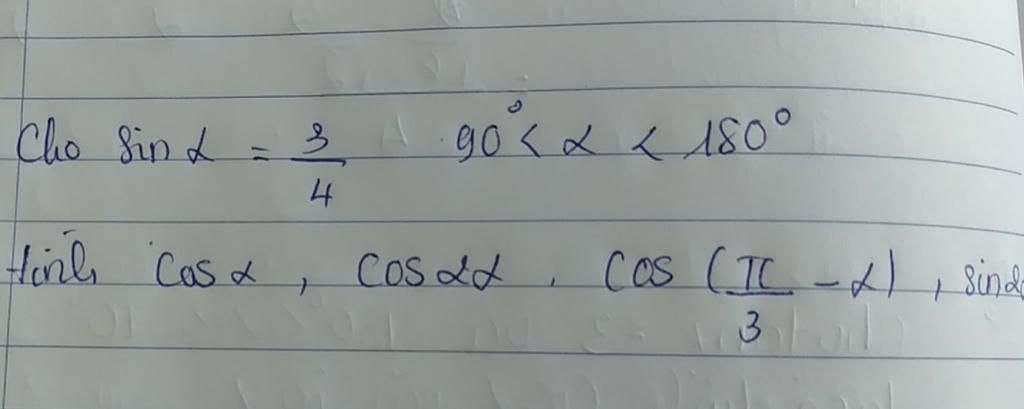 Cho sin α = 3/4 90° < α < 180°
tính cos α, cos 2α, cos (π/3 - α), sin 2